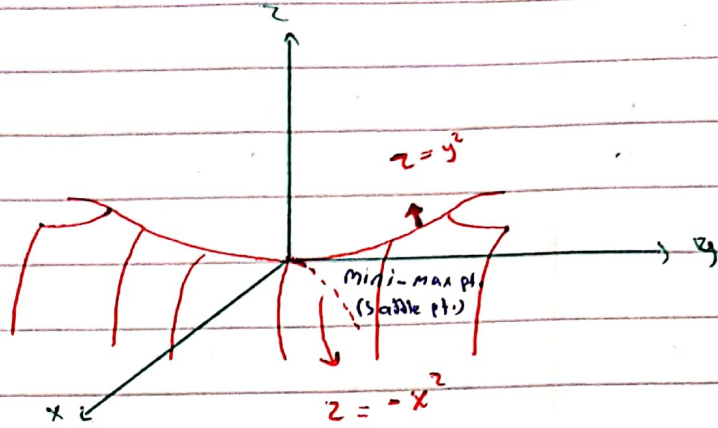 z
z = y²
y
mini-max pt.
(saddle pt.)
x
z = -x²